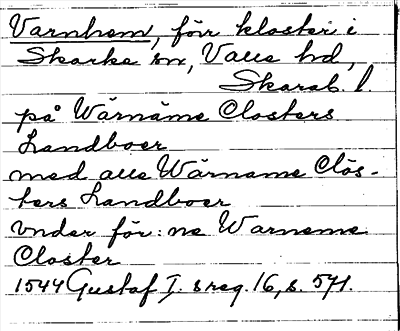 Varnhem, förr kloster i
Skarke sn, Valle hd,
Skarab. l.
på Wärnäme Closters
Landboer
med alle Wärname Clös-
ters Landboer
vnder för:ne Warneme
Closter
1544 Gustaf I:s reg. 16, s. 571.